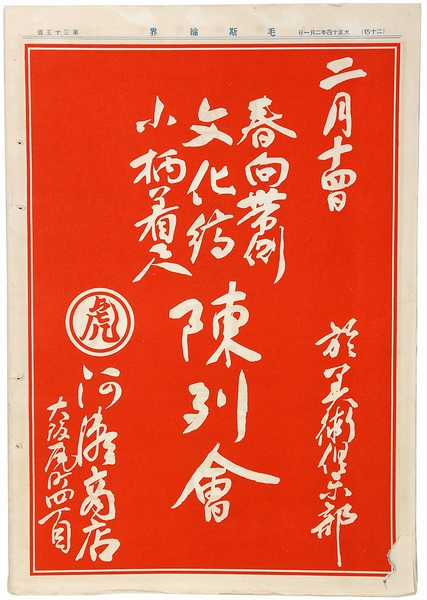 第三十五號 毛斯綸界 大正十四年二月一日 (二十四)
二月十四日
於美術倶楽部
春向帯側
文化縞
小柄着尺
陳列會
虎
河濱商店
大阪